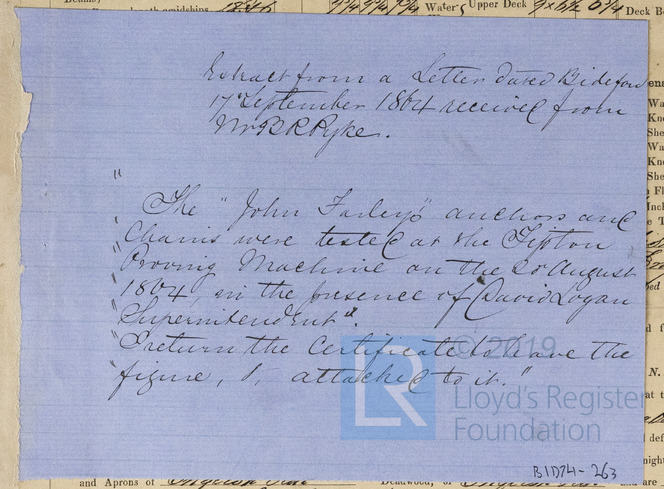 Water Upper Deck
Deck B
Extract from a Letter dated Bideford
17th September 1864 received from
Mr B R Pyke.
" The "John Farley's" anchors and
" Chains were tested at the Tipton
" Proving Machine on the 20 August
" 1864, in the presence of David Logan
" Superintendent".
" I return the Certificate to have the
figure, 1, attached to it."
© 2019
LR
Lloyd's Register
Foundation
BID74-263
and Aprons of English
Deadwood, of English